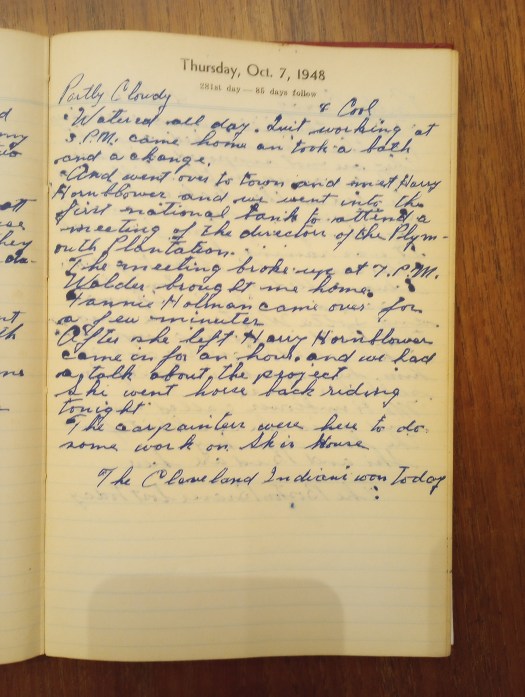 Thursday, Oct. 7, 1948
281st day — 85 days follow
Partly Cloudy & Cool
Watered all day. Quit working at
3 P.M. came home an took a bath
and a change.
And went over to town and met Harry
Hornblower and we went into the
first national bank to attend a
meeting of the director of the Plym-
outh Plantation.
The meeting broke up at 7. P.M.
Walder brought me home.
Fannie Holman came over for
a few minutes
After she left Harry Hornblower
came in for an hour. and we had
a talk about the project
She went horse back riding
tonight
The carpainters were here to do
some work on House
The Cleveland Indians won today